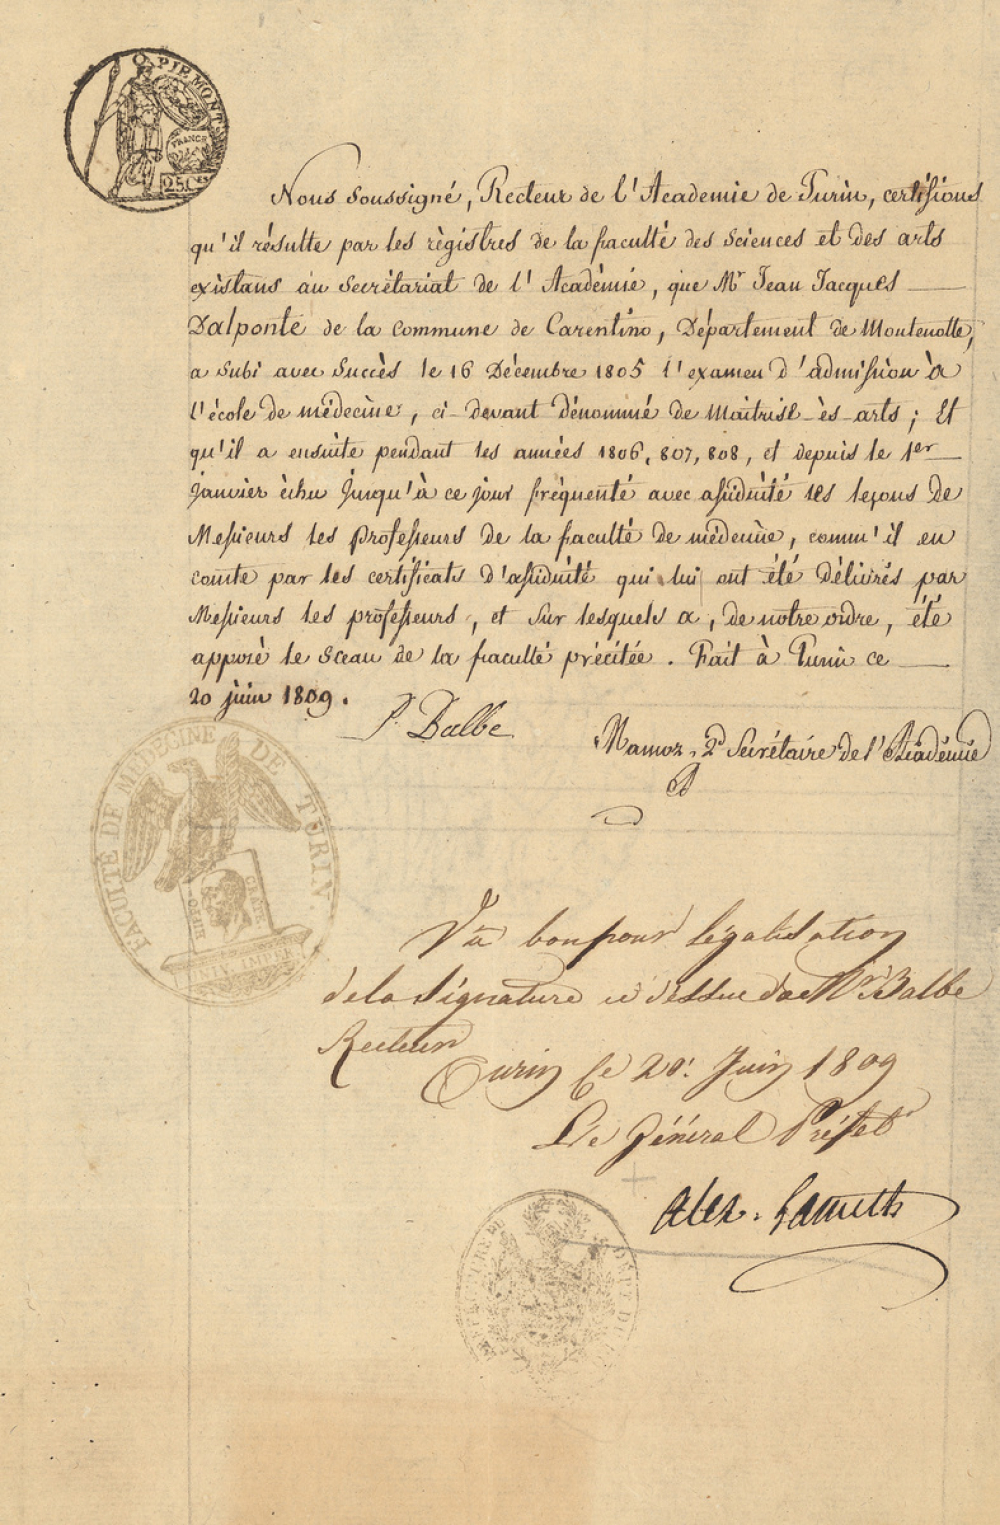 PIEMONT
FRANCE
25 C.ES
Nous soussigné, Recteur de l'Academie de Turin, certifions
qu'il résulte par les règistres de la faculté des Sciences et des arts
existans au Secrétariat de l'Académie, que Mr Jean Jacques
Dalponte de la commune de Carentino, Département de Montenotte,
a subi avec Succès le 16 Décembre 1805 l'examen d'admission à
l'école de médecine, ci-devant dénommé de Maitrise-ès-arts; Et
qu'il a ensuite pendant les années 1806, 807, 808, et depuis le 1er
Janvier échu Jusqu'à ce jour fréquenté avec assiduité les leçons de
Messieurs les professeurs de la faculté de médecine, comm'il en
conste par les certificats d'assiduité qui lui ont été délivrés par
Messieurs les professeurs, et sur lesquels a, de notre ordre, été
apposé le Sceau de la faculté précitée. Fait à Turin ce
20 juin 1809.
P. Balbe
2d Secrétaire de l'Académie
FACULTÉ DE MÉDECINE DE TURIN.
HIPPO-
CRATE
UNIV. IMPER.
Vu bon pour légalisation
de la signature ci dessus de Mr Balbe
Recteur
Turin le 20. Juin 1809
Le Général Préfet
Alex. Lameth